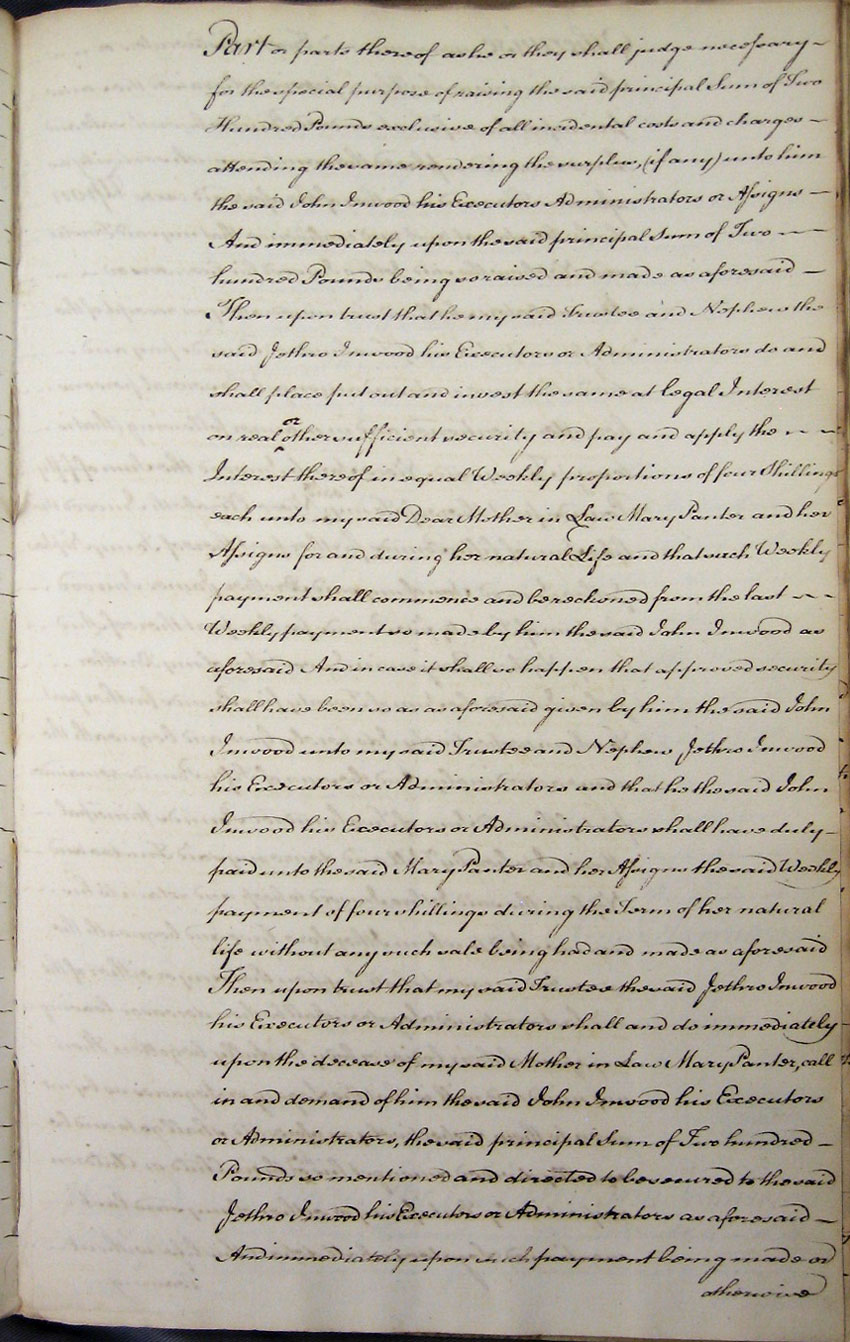 Part or parts thereof as he or they shall judge necessary –
for the special purpose of raising the said principal Sum of Two
Hundred Pounds exclusive of all incidental costs and charges –
attending the same rendering the surplus, (if any) unto him
the said John Inwood his Executors Administrators or Assigns –
And immediately upon the said principal Sum of Two – –
hundred Pounds being so raised and made as aforesaid –
Then upon trust that he my said Trustee and Nephew the
said Jethro Inwood his Executors or Administrators do and
shall place put out and invest the same at legal Interest
on real or other sufficient security and pay and apply the – –
Interest thereof in equal Weekly proportions of four Shillings
each unto my said Dear Mother in Law Mary Panter and her
Assigns for and during her natural Life and that such Weekly
payment shall commence and be reckoned from the last – –
Weekly payment so made by him the said John Inwood as
aforesaid And in case it shall so happen that approved security
shall have been so as as aforesaid given by him the said John
Inwood unto my said Trustee and Nephew Jethro Inwood
his Executors or Administrators and that he the said John
Inwood his Executors or Administrators shall have duly –
paid unto the said Mary Panter and her Assigns the said Weekly
payment of four shillings during the Term of her natural
life without any such sale being had and made as aforesaid
Then upon trust that my said Trustee the said Jethro Inwood
his Executors or Administrators shall and do immediately
upon the decease of my said Mother in Law Mary Panter, call
in and demand of him the said John Inwood his Executors
or Administrators, the said principal Sum of Two hundred –
Pounds so mentioned and directed to be secured to the said
Jethro Inwood his Executors or Administrators as aforesaid –
And immediately upon such payment being made or
otherwise